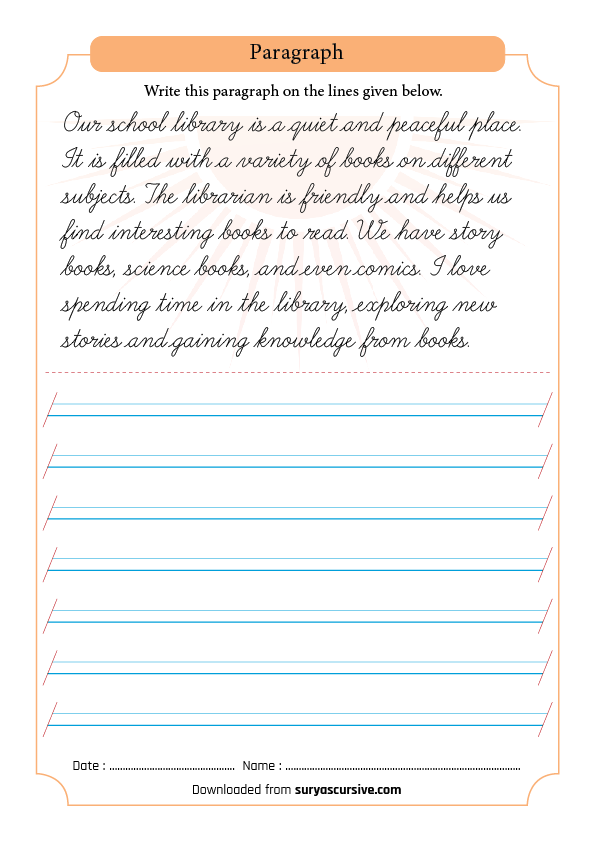 Paragraph
Write this paragraph on the lines given below.
Our school library is a quiet and peaceful place.
It is filled with a variety of books on different
subjects. The librarian is friendly and helps us
find interesting books to read. We have story
books, science books, and even comics. I love
spending time in the library, exploring new
stories and gaining knowledge from books.
Date : ............................................... Name : ........................................................................................
Downloaded from suryascursive.com